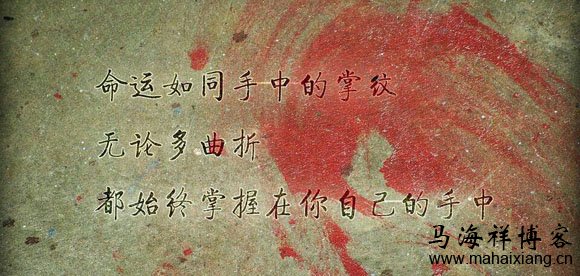 命运如同手中的掌纹
无论多曲折
都始终掌握在你自己的手中
马海祥博客
www.mahaixiang.cn